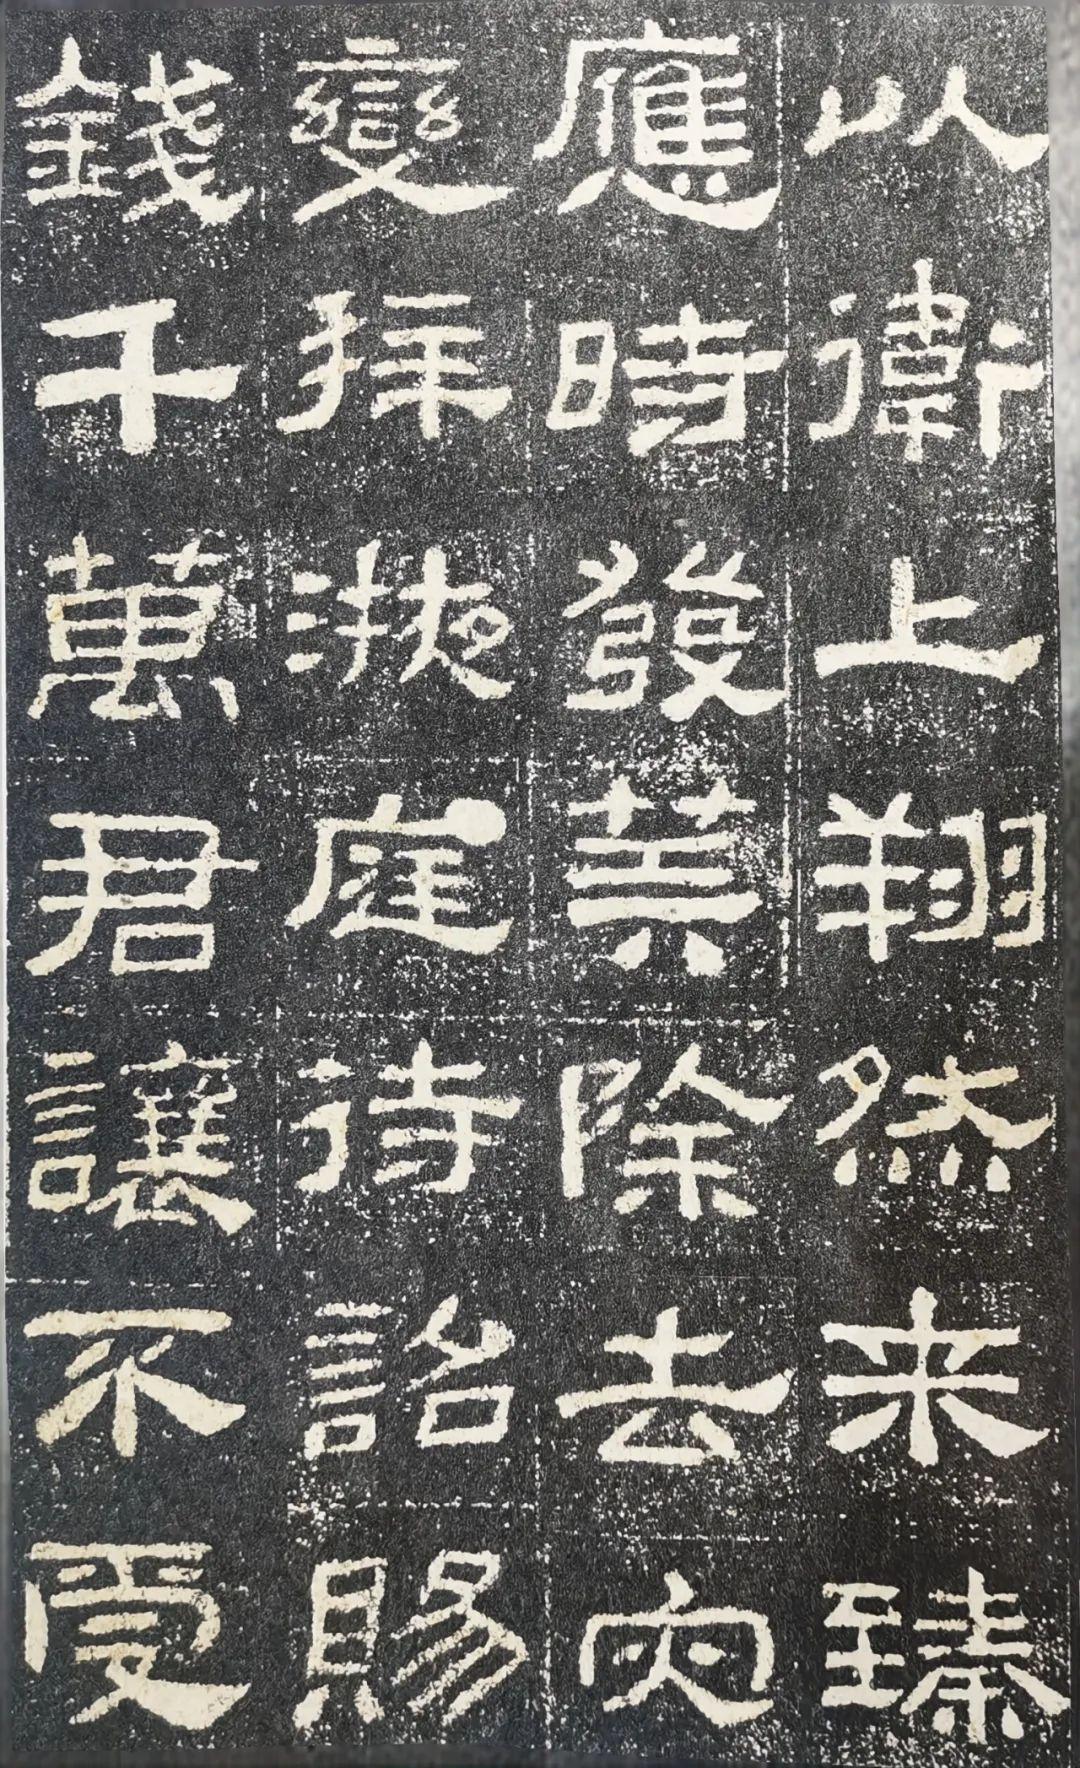 以衛上翔然来臻
應時發筭除去灾
變拜掖庭待詔賜
錢千萬君讓不受